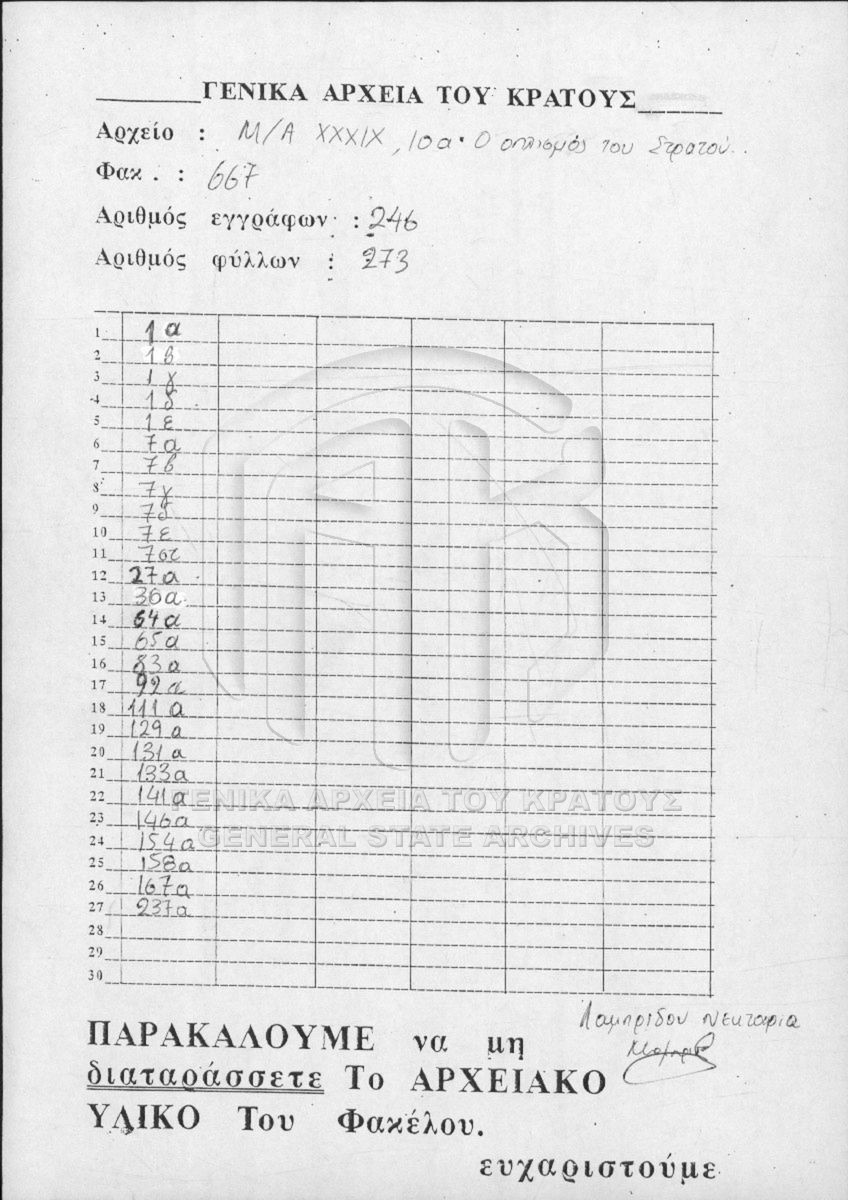 ΓΕΝΙΚΑ ΑΡΧΕΙΑ ΤΟΥ ΚΡΑΤΟΥΣ
Αρχείο : Μ/Α XXXIX, 10α. Ο οπλισμός του Στρατού..
Φακ. : 667
Αριθμός εγγράφων : 246
Αριθμός φύλλων : 273
1 1α
2 1β
3 1γ
4 1δ
5 1ε
6 7α
7 7β
8 7γ
9 7δ
10 7ε
11 7στ
12 27α
13 36α
14 64α
15 65α
16 83α
17 92α
18 111α
19 129α
20 131α
21 133α
22 141α
23 146α
24 154α
25 158α
26 167α
27 237α
28
29
30
ΓΕΝΙΚΑ ΑΡΧΕΙΑ ΤΟΥ ΚΡΑΤΟΥΣ
GENERAL STATE ARCHIVES
Λαμπρίδου Νεκταρία
ΠΑΡΑΚΑΛΟΥΜΕ να μη
διαταράσσετε Το ΑΡΧΕΙΑΚΟ
ΥΛΙΚΟ Του Φακέλου.
ευχαριστούμε